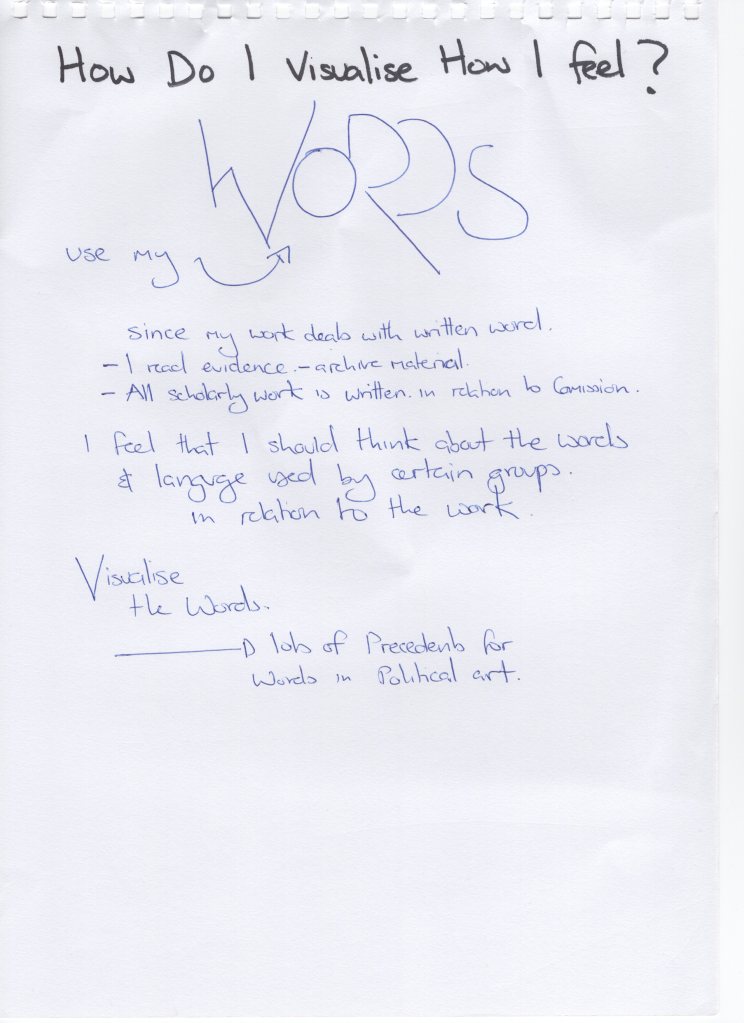 How Do I Visualise How I feel?
WORDS
use my
since my work deals with written word.
- I read evidence. - archive material.
- All scholarly work is written. in relation to Comission.
I feel that I should think about the words
& languge used by certain groups.
in relation to the work.
Visualise
the Words.
lots of Precedents for
Words in Political art.